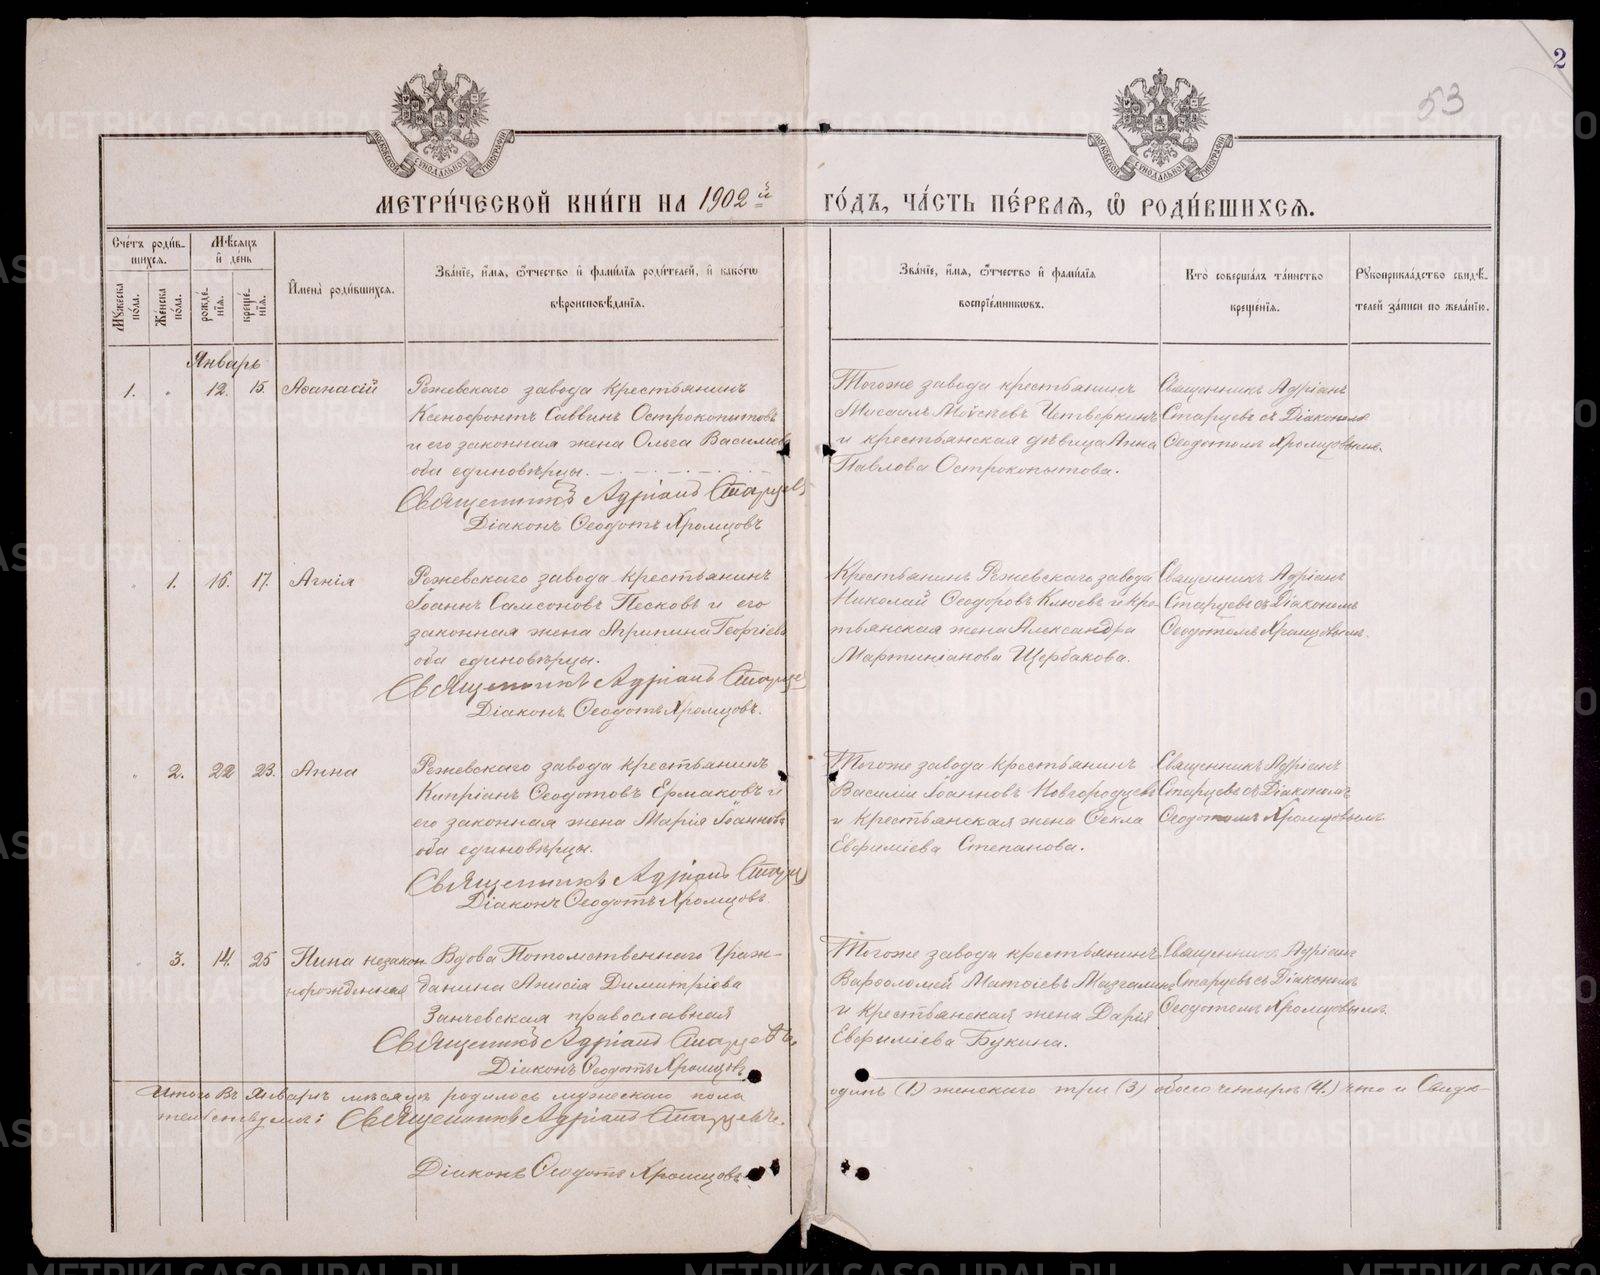 2
53
МОСКОВСКОЙ СѴНОДАЛЬНОЙ ТИПОГРАФІИ
МОСКОВСКОЙ СѴНОДАЛЬНОЙ ТИПОГРАФІИ
МЕТРИ́ЧЕСКОЙ КНИ́ГИ НА 1902й ГО́ДЪ, ЧА́СТЬ ПЕ́РВАѦ, Ѡ РОДИ́ВШИХСѦ.
Сче́тъ роди́в-
шихсѧ.
Мꙋжеска по́ла.
Же́нска по́ла.
Мѣ́сѧцъ и де́нь
рожде́-
нїѧ.
креще́-
нїѧ.
И҆мена̀ роди́вшихсѧ.
Зва́нїе, и҆́мѧ, ѻ҆́тчество и҆ фами́лїѧ роди́телей, и҆ како́гѡ
вѣроисповѣ́данїѧ.
Зва́нїе, и҆́мѧ, ѻ҆́тчество и҆ фами́лїѧ
воспрїе́мникѡвъ.
Кто̀ соверша́лъ та́инство
креще́нїѧ.
Рꙋкоприкла́дство свидѣ́-
телей за́писи по жела́нїю.
Январь
1. " 12. 15. Аѳанасій
Режевскаго завода крестьянинъ
Ксенофонтъ Саввинъ Острокопытовъ
и его законная жена Ольга Василиева
оба единовѣрцы.
Священникъ Адріанъ Старцевъ
Діаконъ Ѳеодотъ Хромцовъ
Тогоже завода крестьянинъ
Мисаилъ Моѵсеевъ Четверкинъ
и крестьянская дѣвица Анна
Павлова Острокопытова.
Священникъ Адріанъ
Старцевъ съ Діакономъ
Ѳеодотомъ Хромцовымъ.
" 1. 16. 17. Агнія
Режевскаго завода крестьянинъ
Іоаннъ Самсоновъ Песковъ и его
законная жена Агрипина Георгіева
оба единовѣрцы.
Священникъ Адріанъ Старцев
Діаконъ Ѳеодотъ Хромцовъ.
Крестьянинъ Режевскаго завода
Николай Ѳеодоровъ Клюевъ и кре-
тьянская жена Александра
Мартиніанова Щербакова.
Священникъ Адріанъ
Старцевъ съ Діакономъ
Ѳеодотомъ Хромцовымъ.
" 2. 22 23. Анна
Режевскаго завода крестьянинъ
Кипріанъ Ѳеодотовъ Ермаковъ и
его законная жена Марія Іоаннова
оба единовѣрцы.
Священникъ Адріанъ Старц
Діаконъ Ѳеодотъ Хромцовъ.
Тогоже завода крестьянинъ
Василій Іоанновъ Новгородцевъ
и крестьянская жена Ѳекла
Евфиміева Степанова.
Священникъ Адріанъ
Старцевъ съ Діакономъ
Ѳеодотомъ Хромцовымъ
" 3. 14. 25 Нина незакон-
норожденная
Вдова Потомственнаго Граж-
данина Анисія Димитріова
Занчевская православная
Священникъ Адріанъ Старцевъ.
Діаконъ Ѳеодотъ Хромцовъ.
Тогоже завода крестьянинъ
Варѳоломей Матѳіевъ Мазгалинъ
и крестьянская жена Дарія
Евфиміева Букина.
Священникъ Адріанъ
Старцевъ съ Діакономъ
Ѳеодотомъ Хромцовымъ.
Итого въ Январѣ мѣсяцѣ родилось мужескаго пола одинъ (1) женскаго три (3) обоего четыре (4.) что и Свидѣ-
тельствуемъ: Священникъ Адріанъ Старцевъ.
Діаконъ Ѳеодотъ Хромцовъ
METRIKI.GASO-URAL.RU